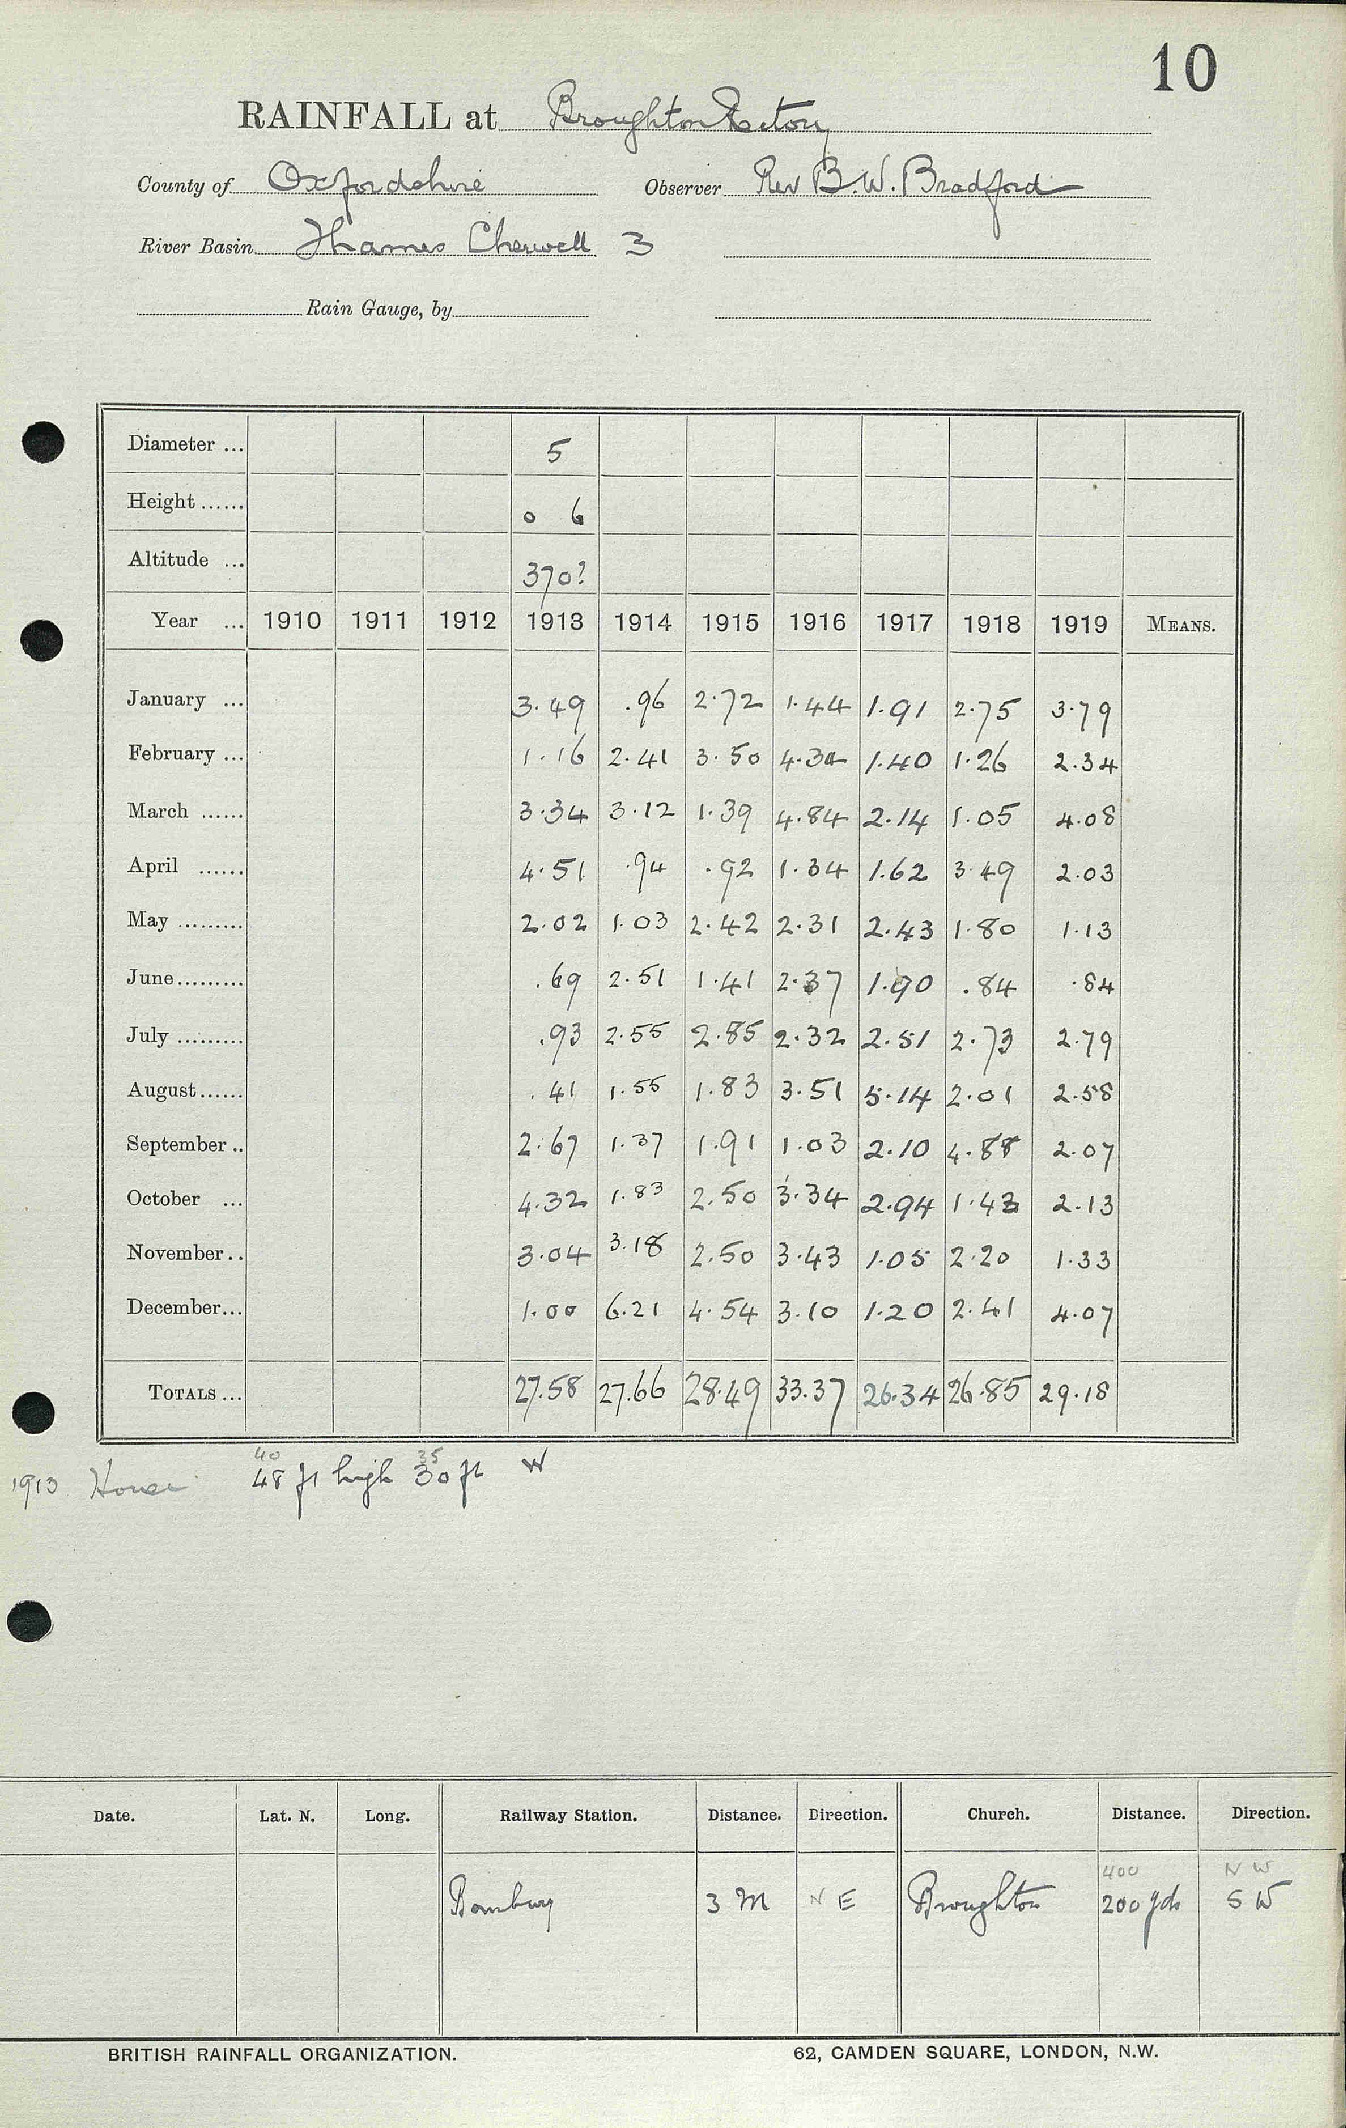 10
RAINFALL at Broughton Rectory
County of Oxfordshire Observer Rev B.W. Bradford
River Basin Thames Cherwell 3
Rain Gauge, by
Diameter ... 5
Height ...... 0 6
Altitude ... 370?
Year ... 1910 1911 1912 1913 1914 1915 1916 1917 1918 1919 MEANS.
January ... 3.49 .96 2.72 1.44 1.91 2.75 3.79
February ... 1.16 2.41 3.50 4.34 1.40 1.26 2.34
March ...... 3.34 3.12 1.39 4.84 2.14 1.05 4.08
April ...... 4.51 .94 .92 1.34 1.62 3.49 2.03
May ......... 2.02 1.03 2.42 2.31 2.43 1.80 1.13
June......... .69 2.51 1.41 2.37 1.90 .84 .84
July ......... .93 2.55 2.85 2.32 2.51 2.73 2.79
August...... .41 1.55 1.83 3.51 5.14 2.01 2.58
September .. 2.67 1.37 1.91 1.03 2.10 4.88 2.07
October ... 4.32 1.83 2.50 3.34 2.94 1.43 2.13
November .. 3.04 3.18 2.50 3.43 1.05 2.20 1.33
December... 1.00 6.21 4.54 3.10 1.20 2.41 4.07
TOTALS ... 27.58 27.66 28.49 33.37 26.34 26.85 29.18
40 35
1913 House 48 ft high 30 ft W
Date. Lat. N. Long. Railway Station. Distance. Direction. Church. Distance. Direction.
400 N W
Banbury 3 M N E Broughton 200 yds S W
BRITISH RAINFALL ORGANIZATION. 62, CAMDEN SQUARE, LONDON, N.W.